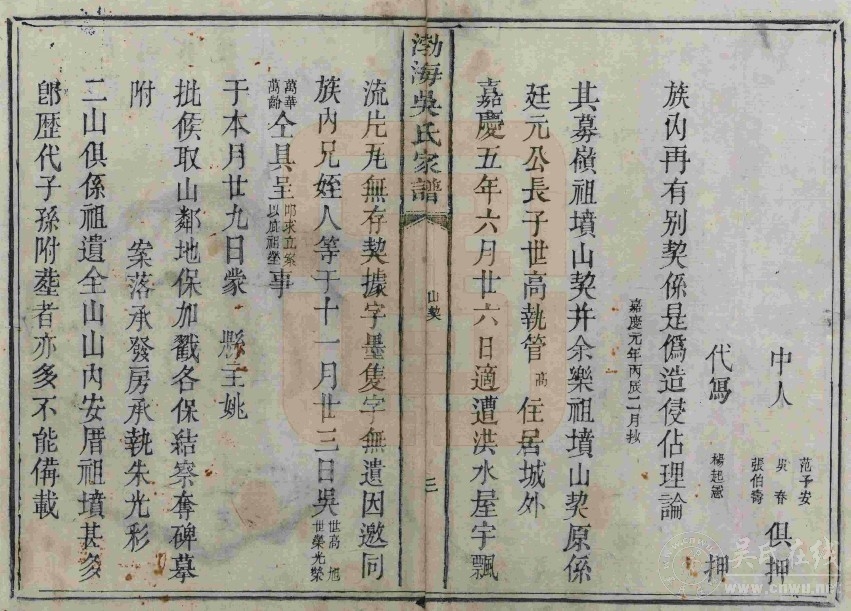 中人 范予安 吳春 張伯壽 俱押
代寫 楊起鸞 押
族內再有別契係是偽造侵佔理論
嘉慶元年丙辰二月抄
其募嶺祖墳山契并余樂祖墳山契原係
廷元公長子世高執管高住居城外
嘉慶五年六月廿六日適遭洪水屋宇飄
渤海吳氏家譜 山契 三
流片瓦無存契據字墨隻字無遺因邀同
族內兄姪人等于十一月廿三日吳世高旭世榮光榮
萬華萬齡仝具呈叩求立案以展祖塋事
于本月廿九日蒙 縣主姚
批候取山鄰地保加戳各保結察奪碑摹
附 案落承發房承執朱光彩
二山俱係祖遺全山山內安厝祖墳甚多
郎歷代子孫附塟者亦多不能備載
吳氏在线
www.cnwu.net